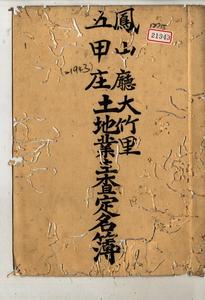 鳳山廳大竹里
五甲庄土地業主查定名簿
(-1943)
21343